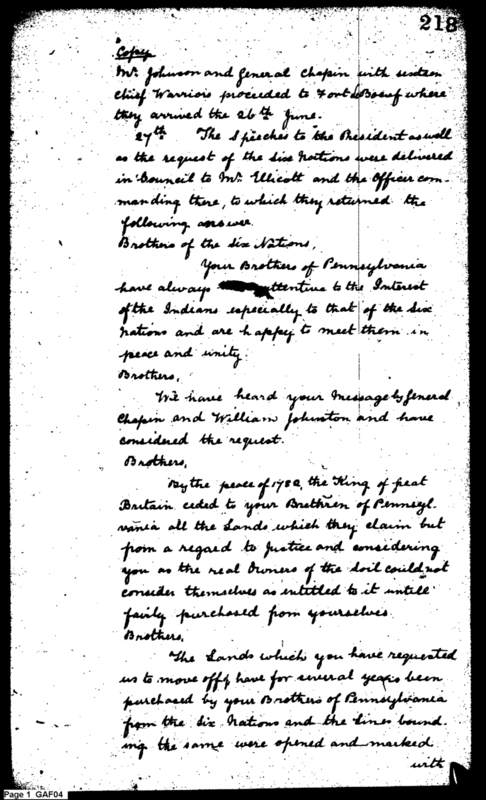 218
Copy
Mr. Johnson and General Chapin with sixteen
Chief Warriors proceeded to Fort le Boeuf where
they arrived the 26th June.
27th The Speeches to the President as well
as the request of the Six Nations were delivered
in Council to Mr. Ellicott and the Officer com-
manding there, to which they returned the
following answer
Brothers of the Six Nations,
Your Brothers of Pennsylvania
have always attentive to the Interest
of the Indians especially to that of the Six
Nations and are happy to meet them in
peace and unity
Brothers,
We have heard your Message by General
Chapin and William Johnston and have
considered the request.
Brothers,
By the peace of 1782, the King of great
Britain ceded to your Brethren of Pennsyl-
vania all the Lands which they claim but
from a regard to Justice and considering
you as the real Owners of the Soil could not
consider themselves as entitled to it untill
fairly purchased from yourselves.
Brothers,
The Lands which you have requested
us to move off have for several years been
purchased by your Brothers of Pennsylvania
from the Six Nations and the Lines bound-
ing the same were opened and marked
with
Page 1 GAF04